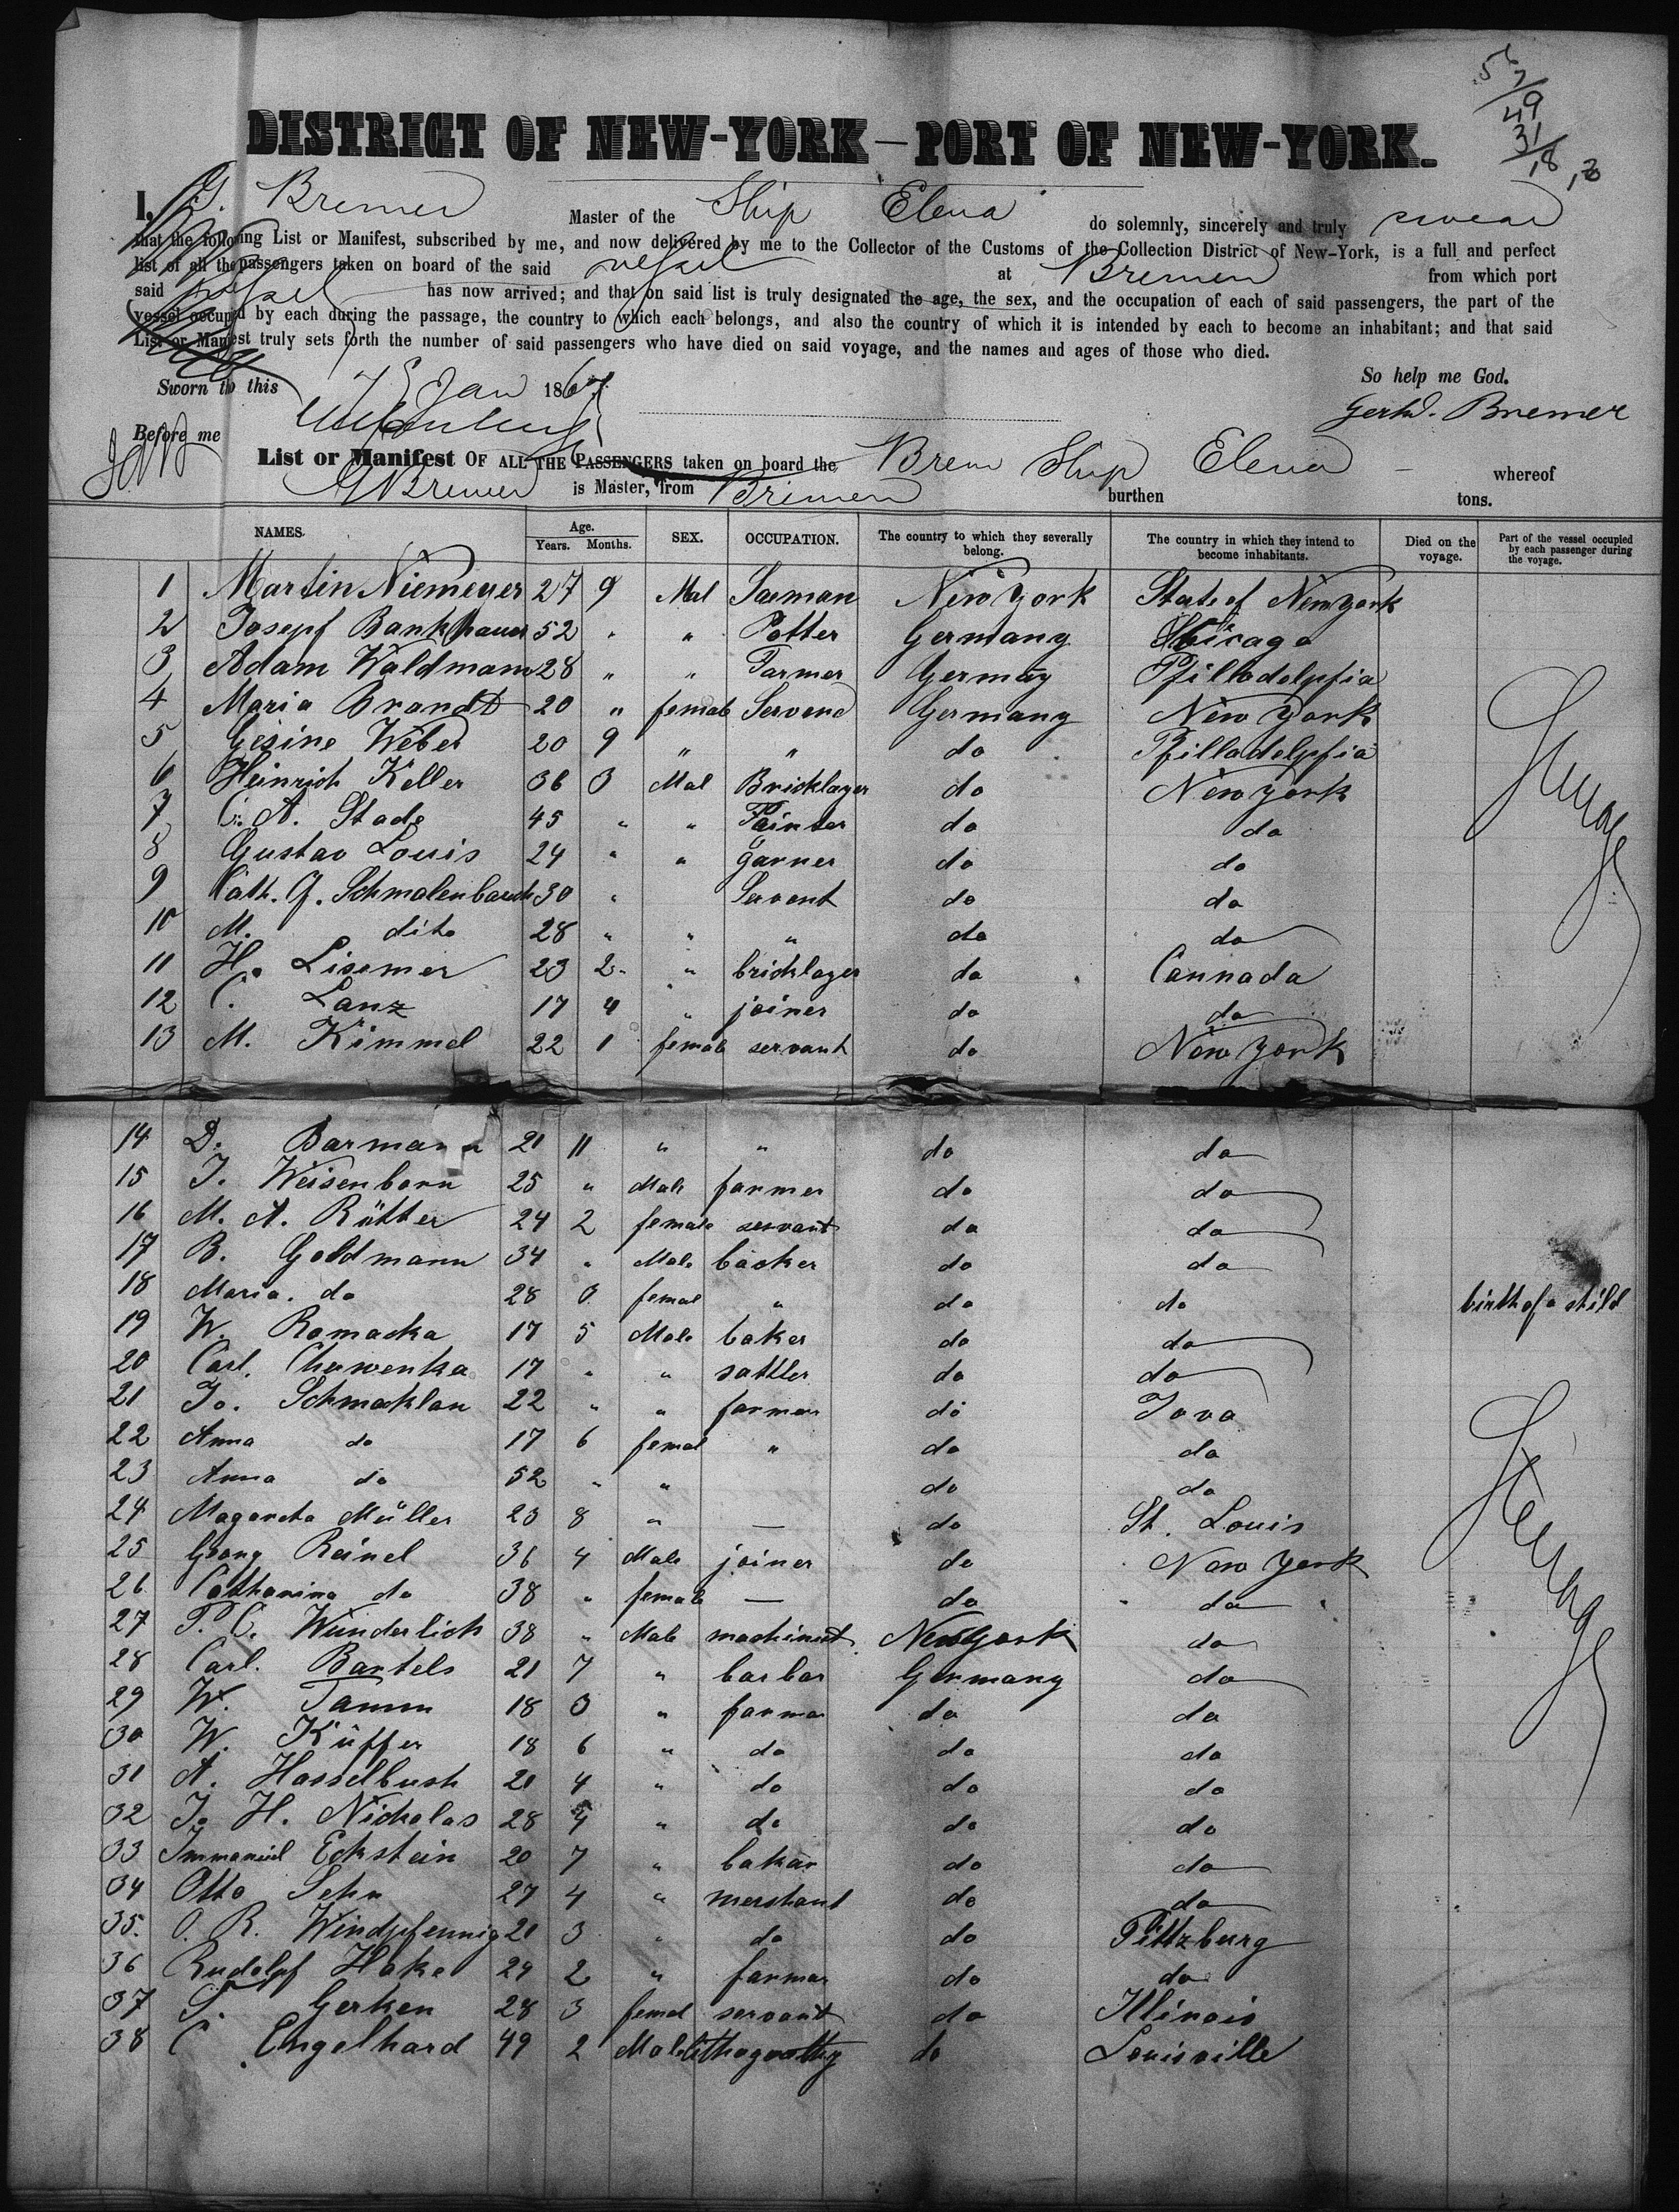 56
7
49
31
18
DISTRICT OF NEW-YORK—PORT OF NEW-YORK.
I, G. Bremer Master of the Ship Elena do solemnly, sincerely and truly swear
that the following List or Manifest, subscribed by me, and now delivered by me to the Collector of the Customs of the Collection District of New-York, is a full and perfect
list of all the passengers taken on board of the said vessel at Bremen from which port
said vessel has now arrived; and that on said list is truly designated the age, the sex, and the occupation of each of said passengers, the part of the
vessel occupied by each during the passage, the country to which each belongs, and also the country of which it is intended by each to become an inhabitant; and that said
List or Manifest truly sets forth the number of said passengers who have died on said voyage, and the names and ages of those who died.
So help me God.
Sworn to this 7 Jan 1867
Gerhd. Bremer
Before me
List or Manifest OF ALL THE PASSENGERS taken on board the Brem Ship Elena whereof
G Bremer is Master, from Bremen burthen tons.
NAMES. Age. Years. Months. SEX. OCCUPATION. The country to which they severally belong. The country in which they intend to become inhabitants. Died on the voyage. Part of the vessel occupied by each passenger during the voyage.
1 Martin Niemeyer 27 9 Mal Saeman New York State of New York
2 Josepf Bankhauer 52 " " Potter Germany Chicago
3 Adam Waldmann 28 " " Farmer Germany Pfilladelpfia
4 Maria Brandt 20 " female Servend Germany New York
5 Gesine Weber 20 9 " " do Pfilladelpfia
6 Heinrich Keller 36 3 Mal Bricklayer do New York
7 C. A. Stade 45 " " Painter do do
8 Gustav Louis 24 " " garner do do
9 Cath. G. Schmalenbach 30 " Servent do do
10 M. dito 28 " " " do do
11 H. Lisemer 23 2 " bricklayer do Cannada
12 C. Lanz 17 4 " joiner do do
13 M. Kimmel 22 1 female servant do New York
14 D. Barmann 21 11 " " do do
15 J. Weisenborn 25 " Male farmer do do
16 M. A. Rötter 24 2 female servant do do
17 B. Goldmann 34 " Male backer do do
18 Maria do 28 3 femal " do do birth of a child
19 W. Ramacka 17 5 Male baker do do
20 Carl. Cherwenka 17 " " sattler do do
21 Jo. Schmaklan 22 " " farmer do Iova
22 Anna do 17 6 femal " do do
23 Anna do 52 " " do do
24 Magareta Müller 23 8 " — do St. Louis
25 Georg Reinel 36 4 Male joiner do New York
26 Catharina do 38 " female — do do
27 P. C. Wunderlich 38 " Male machinist New York do
28 Carl. Bartels 21 7 " barbar Germany do
29 W. Tamm 18 3 " farmar do do
30 W. Küffer 18 6 " do do do
31 A. Hasselbush 21 4 " do do do
32 Jo H. Nicholas 28 4 " do do do
33 Immanuel Eckstein 20 7 " bakar do do
34 Otto Sehn 27 4 " merchant do do
35. O. R. Windpfennig 21 3 " do do Pittzburg
36 Rudolpf Hake 29 2 " farmar do do
37 S. Gerken 28 3 femal servant do Illinois
38 C Engelhard 49 2 Male do Louisville